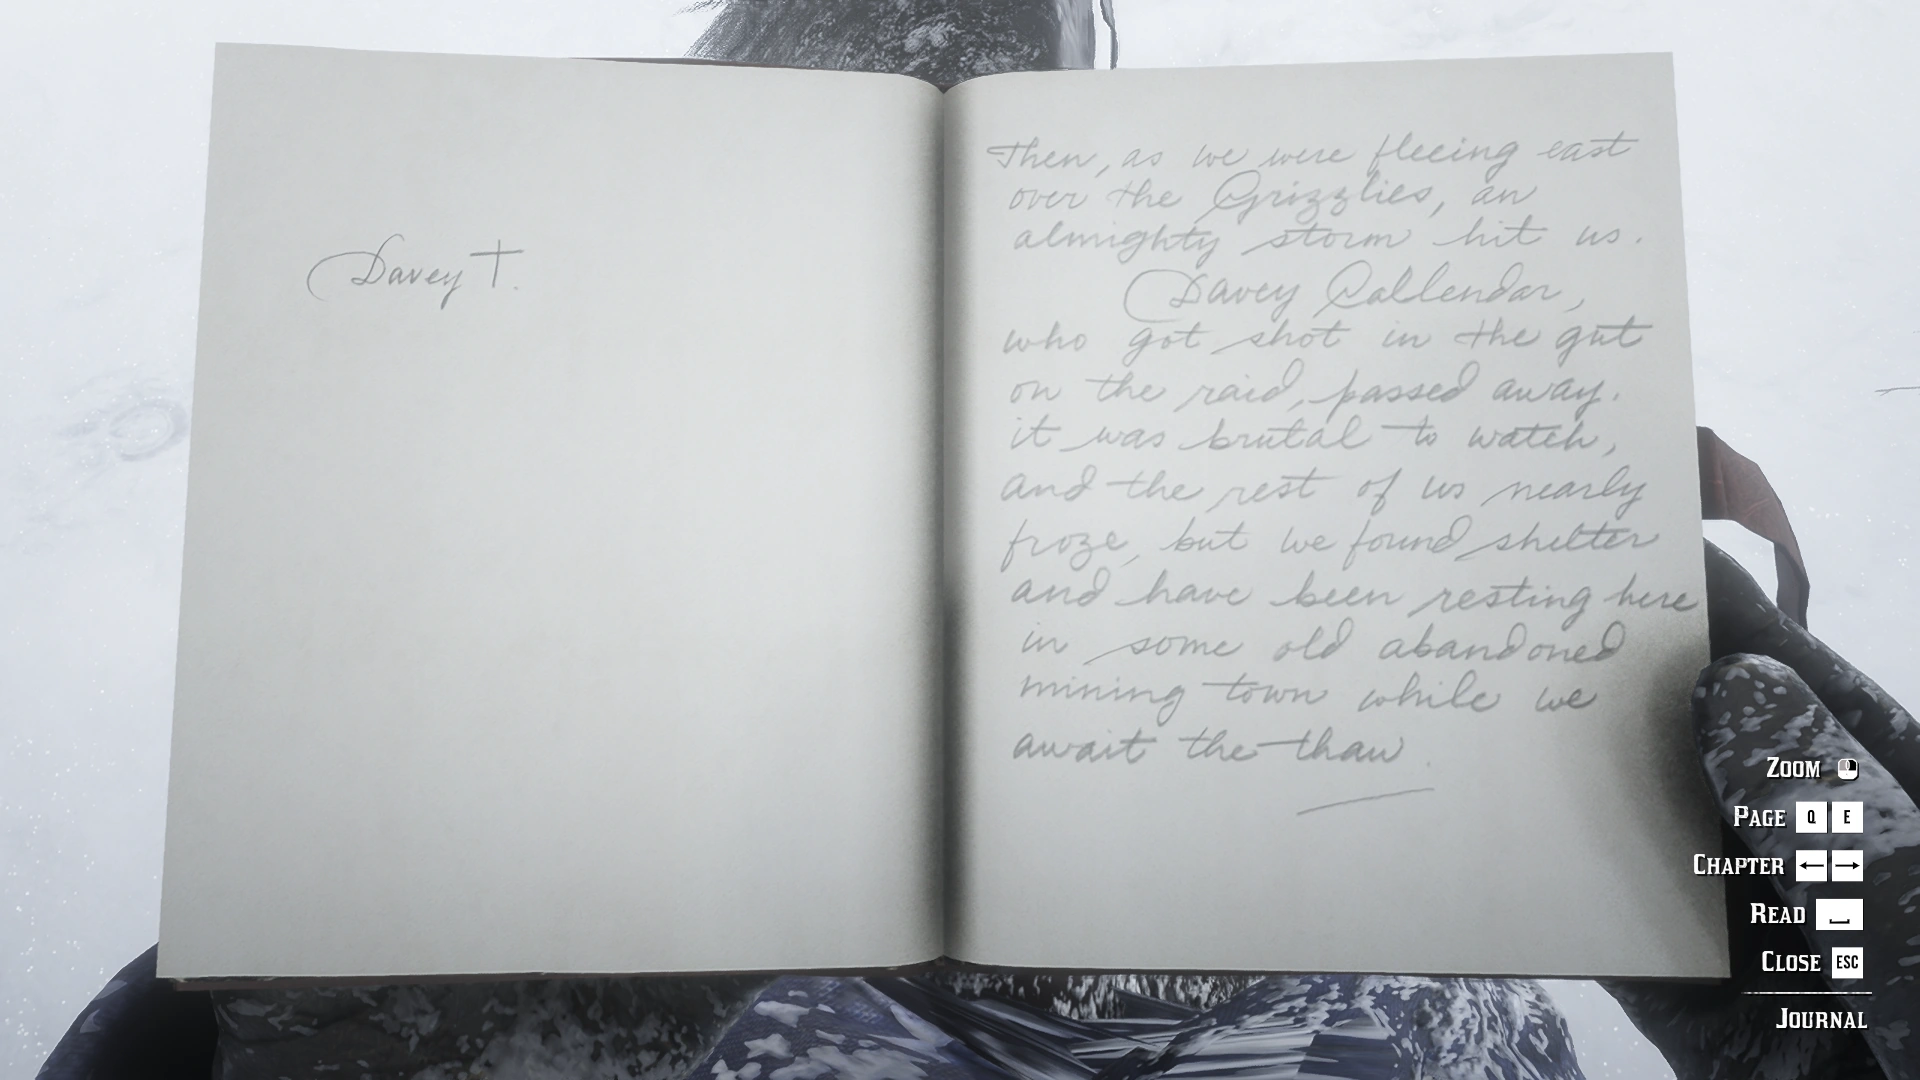 Davey T.
Then, as we were fleeing east
over the Grizzlies, an
almighty storm hit us.
Davey Callendar,
who got shot in the gut
on the raid, passed away.
it was brutal to watch,
and the rest of us nearly
froze, but we found shelter
and have been resting here
in some old abandoned
mining town while we
await the thaw.
ZOOM
PAGE Q E
CHAPTER ← →
READ
CLOSE ESC
JOURNAL